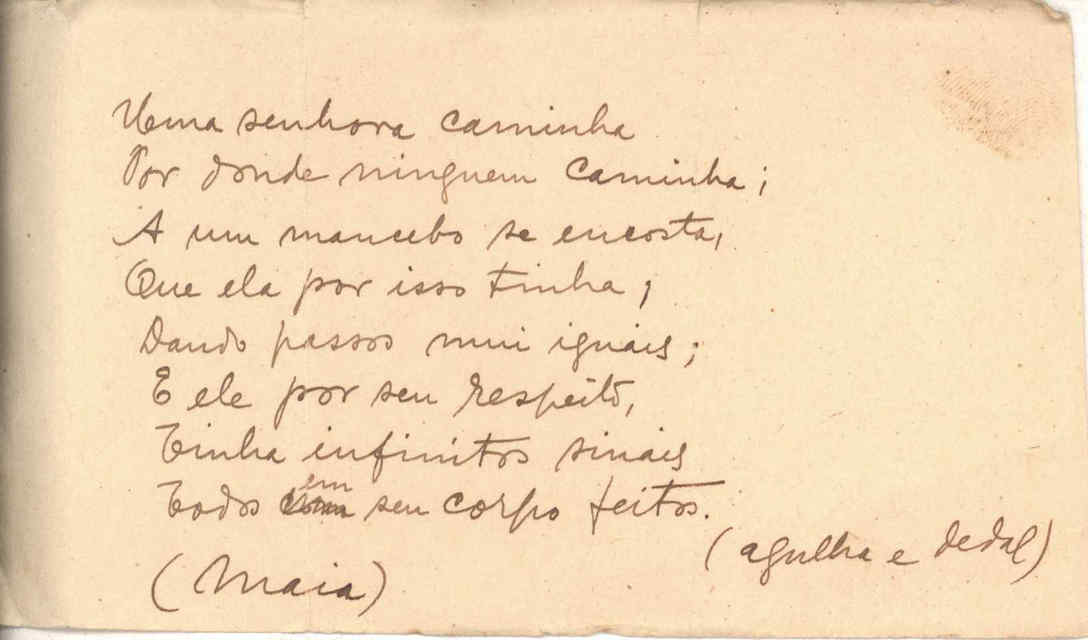 Uma senhora caminha
Por donde ninguem caminha;
A um mancebo se encosta,
Que ela por isso tinha;
Dando passos mui iguais;
E ele por seu respeito,
Tinha infinitos sinais
Todos em seu corpo feitos.
(agulha e dedal)
(Maia)